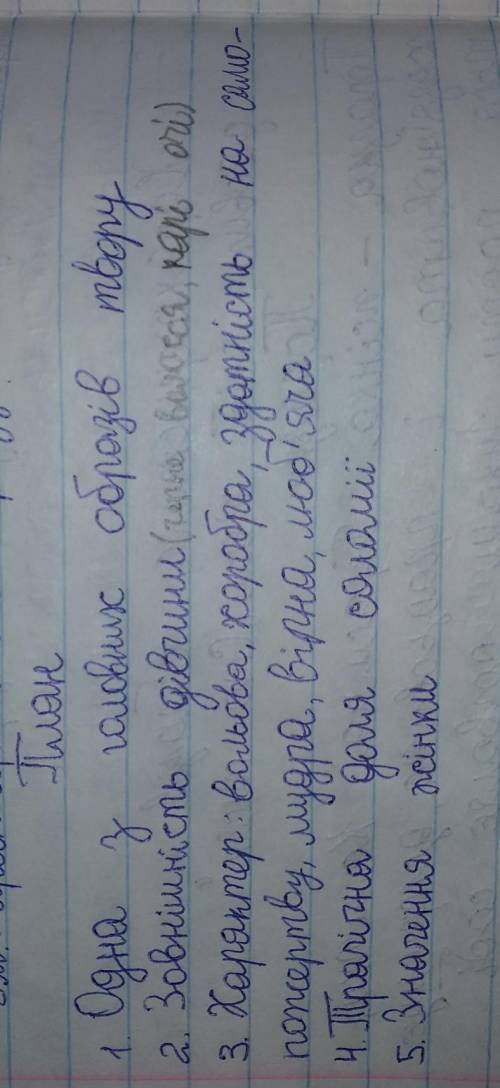 План
1. Одна з головних образів твору
2. Зовнішність дівчини (чорне волосся, карі очі)
3. Характер: вольова, хоробра, здатність на само-
пожертву, мудра, вірна, люб'яча
4. Трагічна доля Соломії
5. Значення жінки